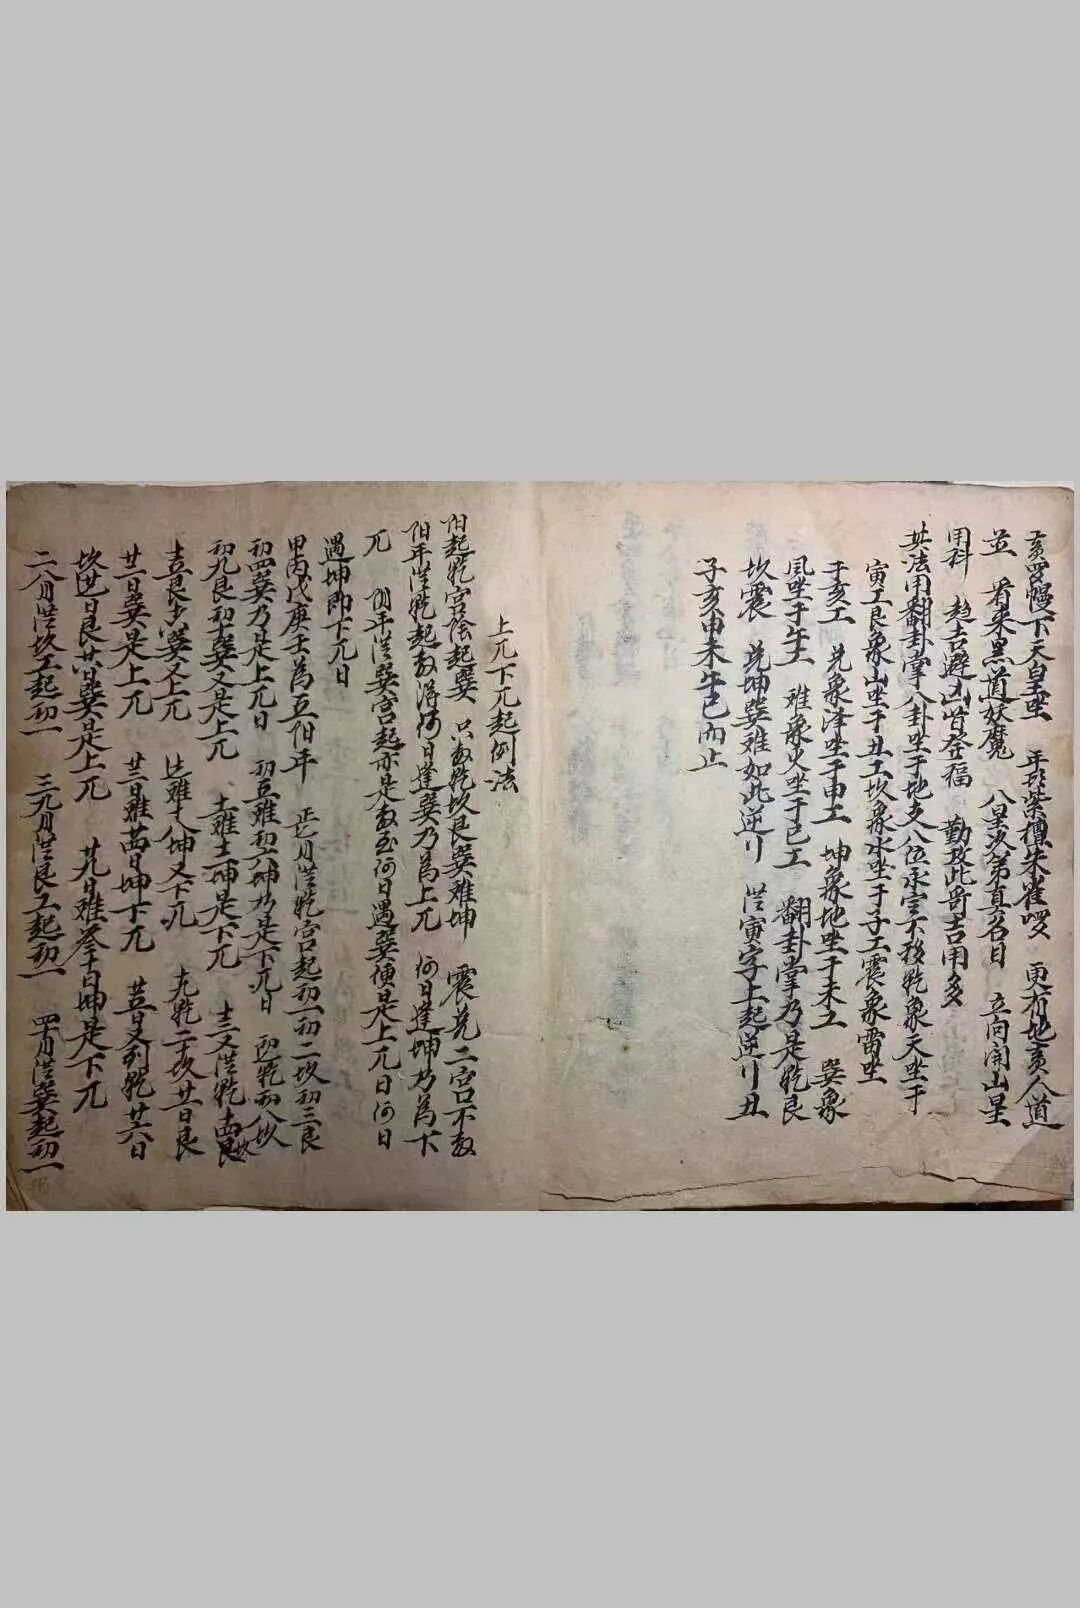 亥罗幔下天皇坐 年马紫檀朱雀啰 更有地亥人道
並 看来黑道妖魔 八星次第真名目 立向開山星
用科 趋吉避凶皆登福 勤孜此哥吉用多
其法用翻卦掌八卦坐于地支八位永定不移乾象天坐于
寅工艮象山坐于丑工坎象水坐于子工震象雷坐
于亥工 兑象泽坐于申工 坤象地坐于未工 巽象
風坐于午工 难象火坐于巳工 翻卦掌乃是乾艮
坎震 兑坤巽难如此逆行 從寅字上起逆行丑
子亥申未午巳而止
上兀下兀起例法
阳起乾宫陰起巽 只数乾坎艮巽难坤 震兑二宫不数
阳年從乾起数得何日逢巽乃為上兀 何日逢坤乃為下
兀 阴年從巽宫起亦是数至何日遇巽便是上兀日何日
遇坤即下兀日
甲丙戊庚壬為五阳年 正七月從乾宫起初一初二坎初三艮
初四巽乃是上兀日 初五难初六坤乃是下兀日 初七乾初八坎
初九艮初十巽又是上兀 十一难十二坤是下兀 十三又從乾十四坎
十五艮十六巽又上兀 十七难十八坤又下兀 十九乾二十坎廿一日艮
廿二日巽是上兀 廿三日难廿四日坤下兀 廿五日又到乾廿六日
坎廿七日艮廿八日巽是上兀 廿九日难叁十日坤是下兀
二八月從坎工起初一 三九月從艮工起初一 四十月從巽起初一